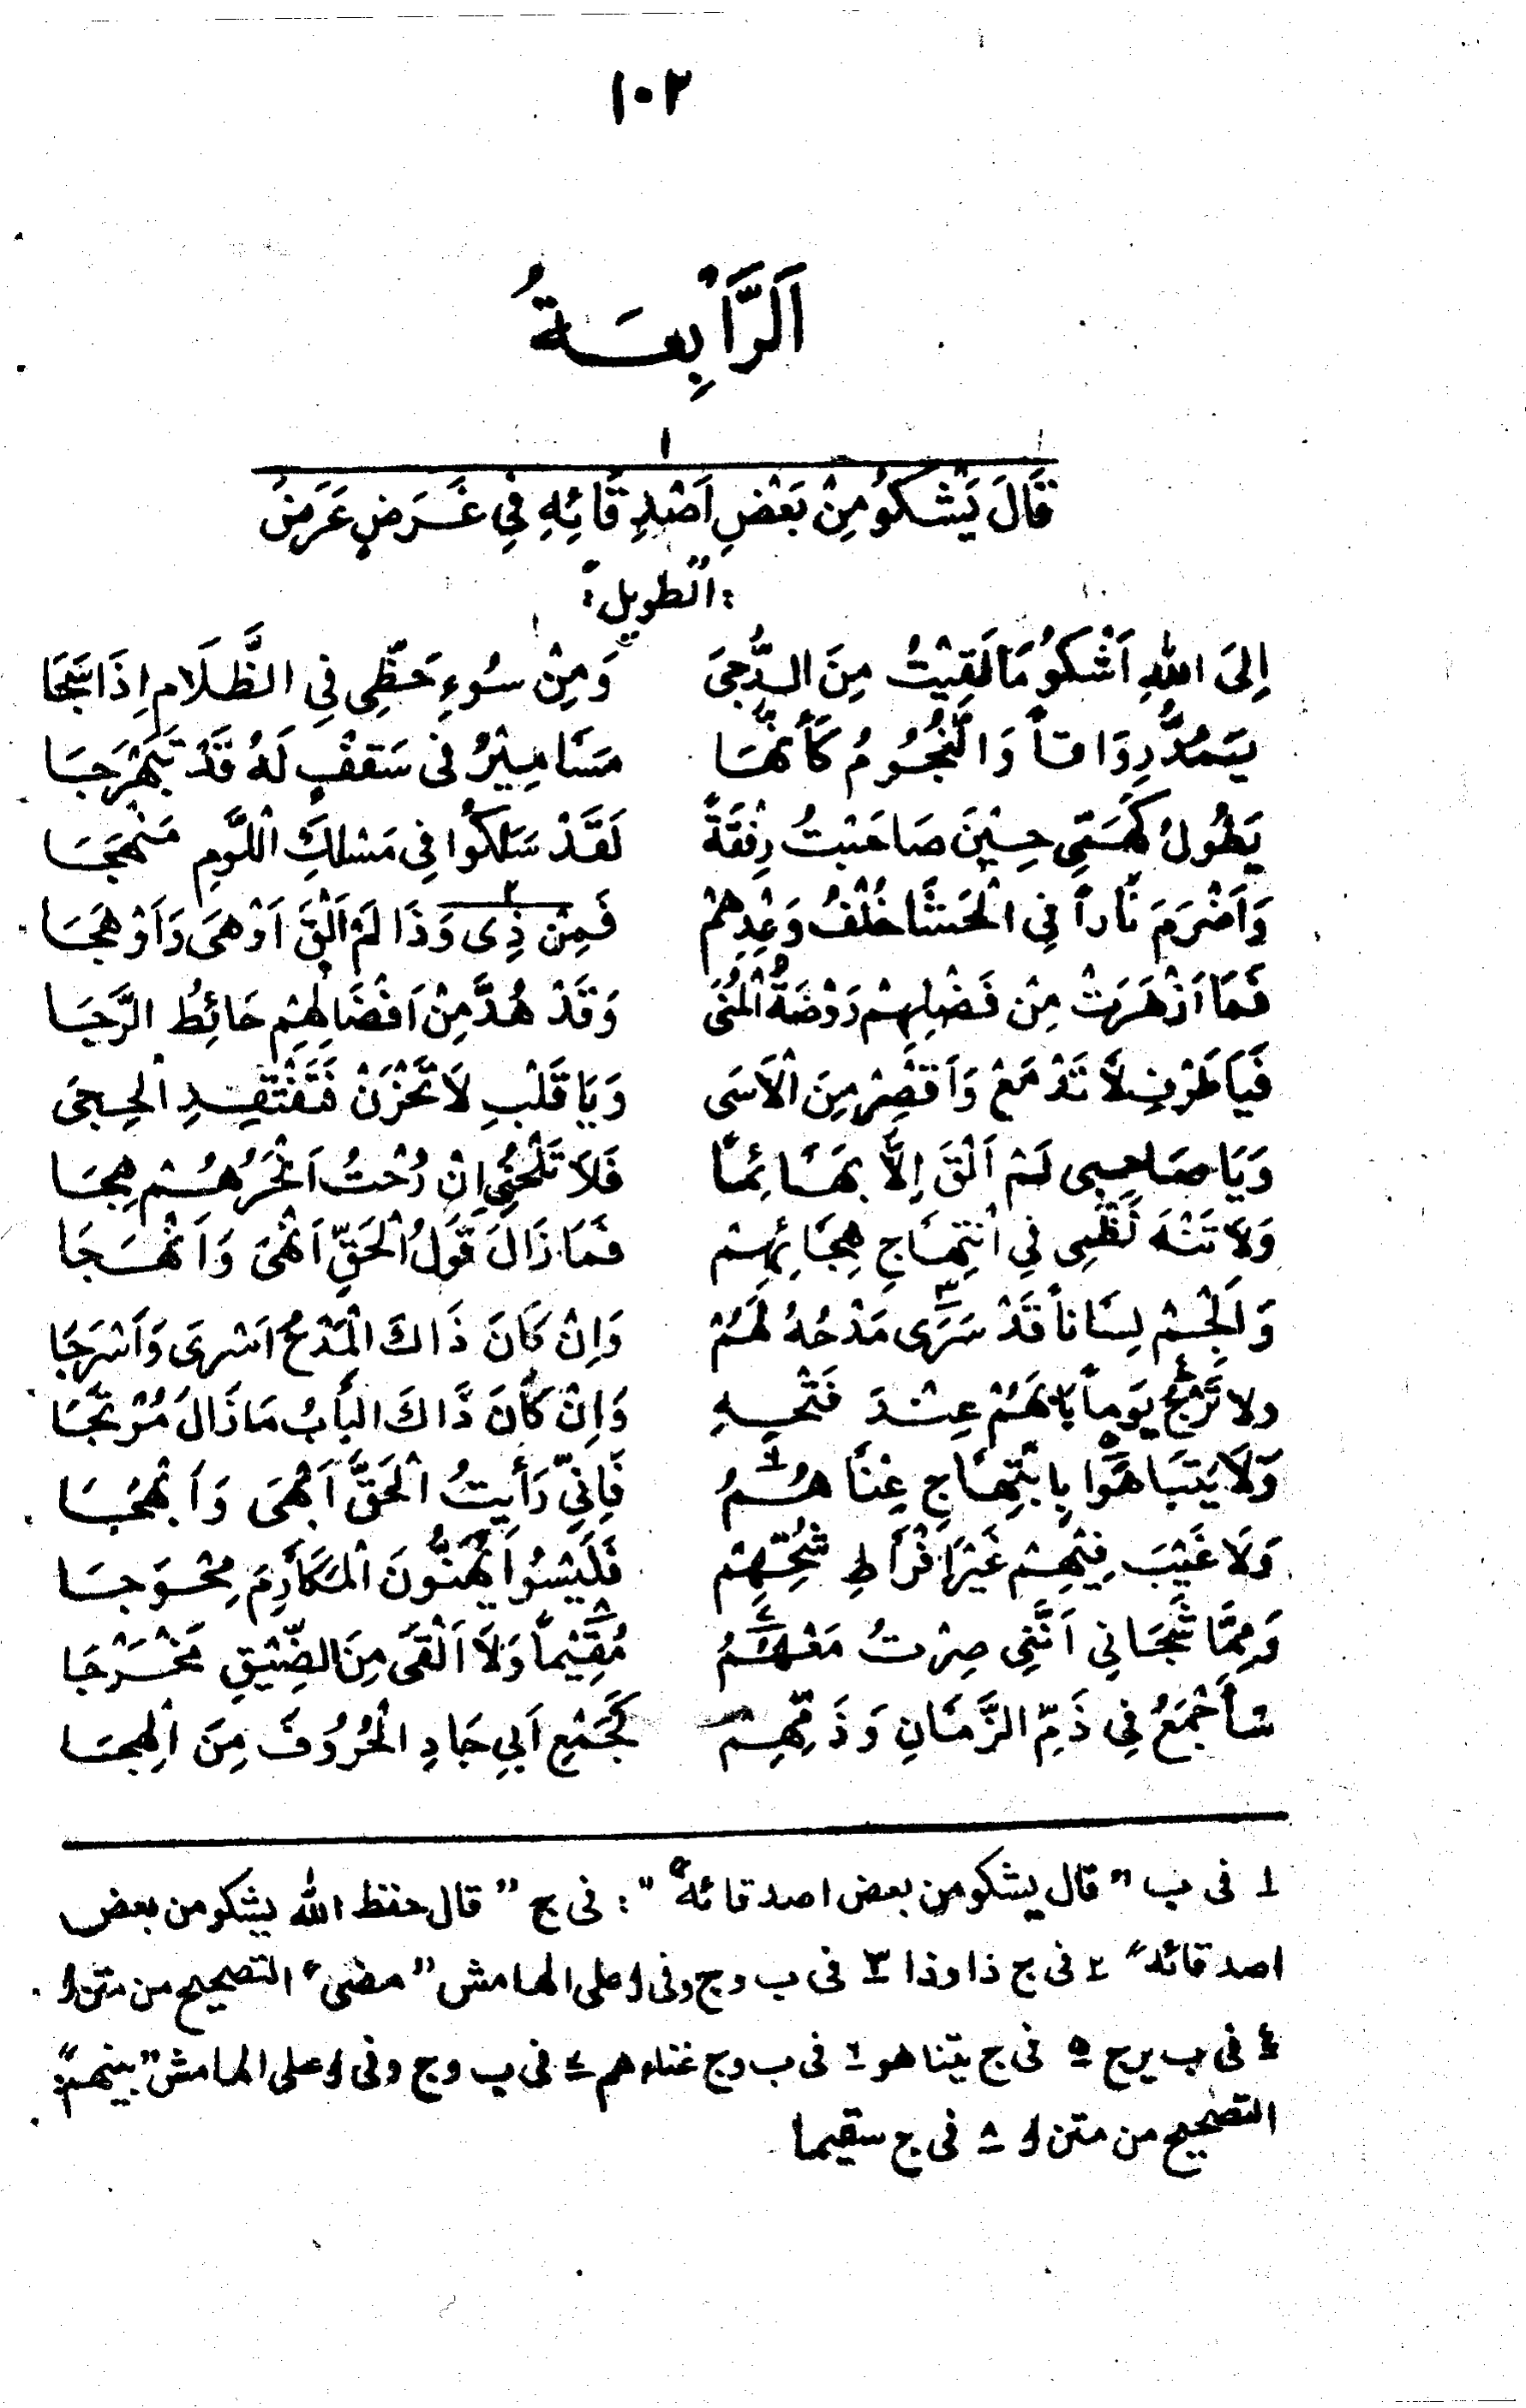 ١٠٢
اَلرَّابِعَةُ
١
قَالَ يَشْكُو مِنْ بَعْضِ اَصْدِقَائِهِ فِي غَرَضٍ عَرَضَ
:الطويل:
اِلىَ اللهِ اَشْكُو مَا لَقِيْتُ مِنَ الدُّجىَ وَمِنْ سُوءِ حَظِّى فِي الظَّلَامِ اِذَا سَجَا
يَمُدُّ رِوَاقاً وَالنُّجُومُ كَأَنَّهَا مَسَامِيْرُ فى سَقفٍ لَهُ قَدْ تَبَهْرَجَا
يَطُولُ كَهَمِّى حِيْنَ صَاحَبْتُ رِفْقَةً لَقَدْ سَلَكُوا فِى مَسْلكِ اللَّومِ مَنْهَجَا
وَاَضْرَمَ نَاراً فِي الْحَشَا خُلْفُ وَعْدِهِمْ فَمِنْ ذِى وَذَا٢ لَمْ اَلْقَ اَوْهىَ وَاَوْهَجَا
فَمَا اَزْهَرَتْ مِنْ فَضْلِهِمْ رَوْضَةُ الْمُنَى وَقَدْ هُدَّ مِنْ اَفْضَالِهِمْ حَائِطُ الرَّجَا
فَيَا طَرْفِ لاَ تَدْمَعْ وَاَقْصِرْ مِنَ الْاَسَى وَيَا قَلْبِ لاَ تَحْزَنْ فَتَفْتَقِدِ الْحِجَى
وَيَا صَاحِبِى لَمْ اَلْقَ اِلاَّ بَهَائِمًا فَلاَ تَلْحَنِى اِنْ رُحْتُ اَنْحَرُهُمْ هِجَا
وَلاَ تَنْهَ نَظْمِى فِي انْتِهَاجِ هِجَائِهِمْ فَمَا زَالَ قَولُ الْحَقِّ اَنْهَى وَاَنْهَجَا
وَاَلْجِمْ لِسَاناً قَدْ سَرَى٣ مَدْحُهُ لَهُمْ وَاِنْ كَانَ ذَاكَ الْمَدْحُ اَسْرىَ وَاَسْرَجَا
ولا تَرْجُ٤ يَوماً بَابَهُمْ عِنْدَ فَتْحِهِ وَاِنْ كَانَ ذَاكَ البَابُ مَا زَالَ مُرْتَجَا
وَلَا يَتَبَاهَوْا٥ بِابْتِهَاجِ غِنَاهُمُ٦ فَاِنِّي رَأَيتُ الْحَقَّ اَبْهَى وَاَبْهَجَا
وَلَا عَيْبَ فِيْهِمْ غَيْرَ اِفْرَاطِ شُحِّهِمْ فَلَيْسُوا يُهَنُّونَ الْمَكَارِمَ مِحْوَجَا
وَمِمَّا شَجَانِي اَنَّنِى صِرْتُ مَعْهُمُ٧ مُقِيْماً٨ وَلاَ اَلْقَى مِنَ الضِّيْقِ مَخْرَجَا
سَأَجْمَعُ فِي ذَمِّ الزَّمَانِ وَذَمِّهِمْ كَجَمْعِ اَبِي جَادِ الْحُرُوفَ مِنَ الْهِجَا
١ فى ب "قال يشكو من بعض اصدقائه" : فى ج "قال حفظ الله يشكو من بعض
اصدقائه" ٢ فى ج ذا وذا ٣ فى ب وج وفى أ على الهامش "مضى" التصحيح من متن أ
٤ فى ب يرج ٥ فى ج يتناهو ٦ فى ب وج غناءهم ٧ فى ب وج وفى أ على الهامش "بينهم"
التصحيح من متن أ ٨ فى ج سقيما